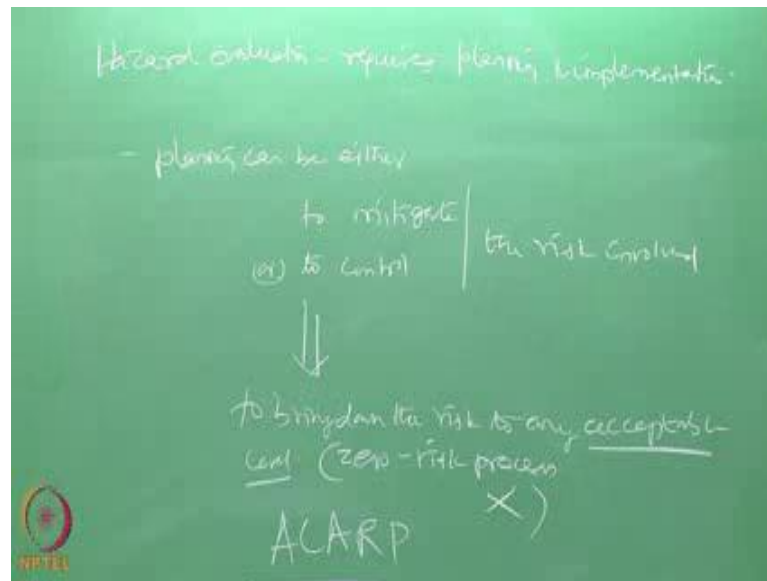 Hazard evaluation - requires planning & implementation.
- planning can be either
to mitigate
(or) to control
the risk involved
to bring down the risk to any acceptable
level (zero-risk process
X)
ALARP
NPTEL